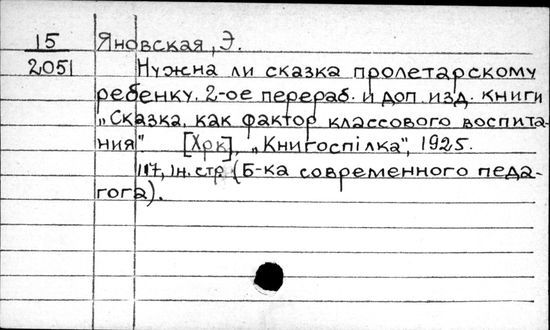 15 Яновская, Э.
2051 Нужна ли сказка пролетарскому
ребенку. 2-ое перераб. и доп. изд. книги
„Сказка, как фактор классового воспита-
ния". [Хрк], „Книгоспілка", 1925.
117, 1н. стр. (Б-ка современного педа-
гога).